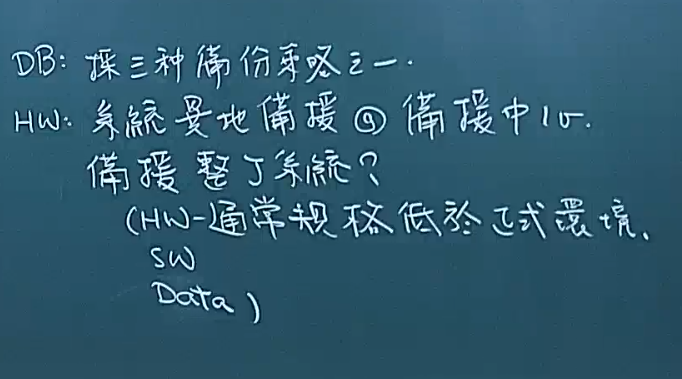 DB: 採三种備份策略之一.
HW: 系統異地備援@備援中心.
備援整丁系統?
(HW-通常規格低於正式環境.
SW
Data)